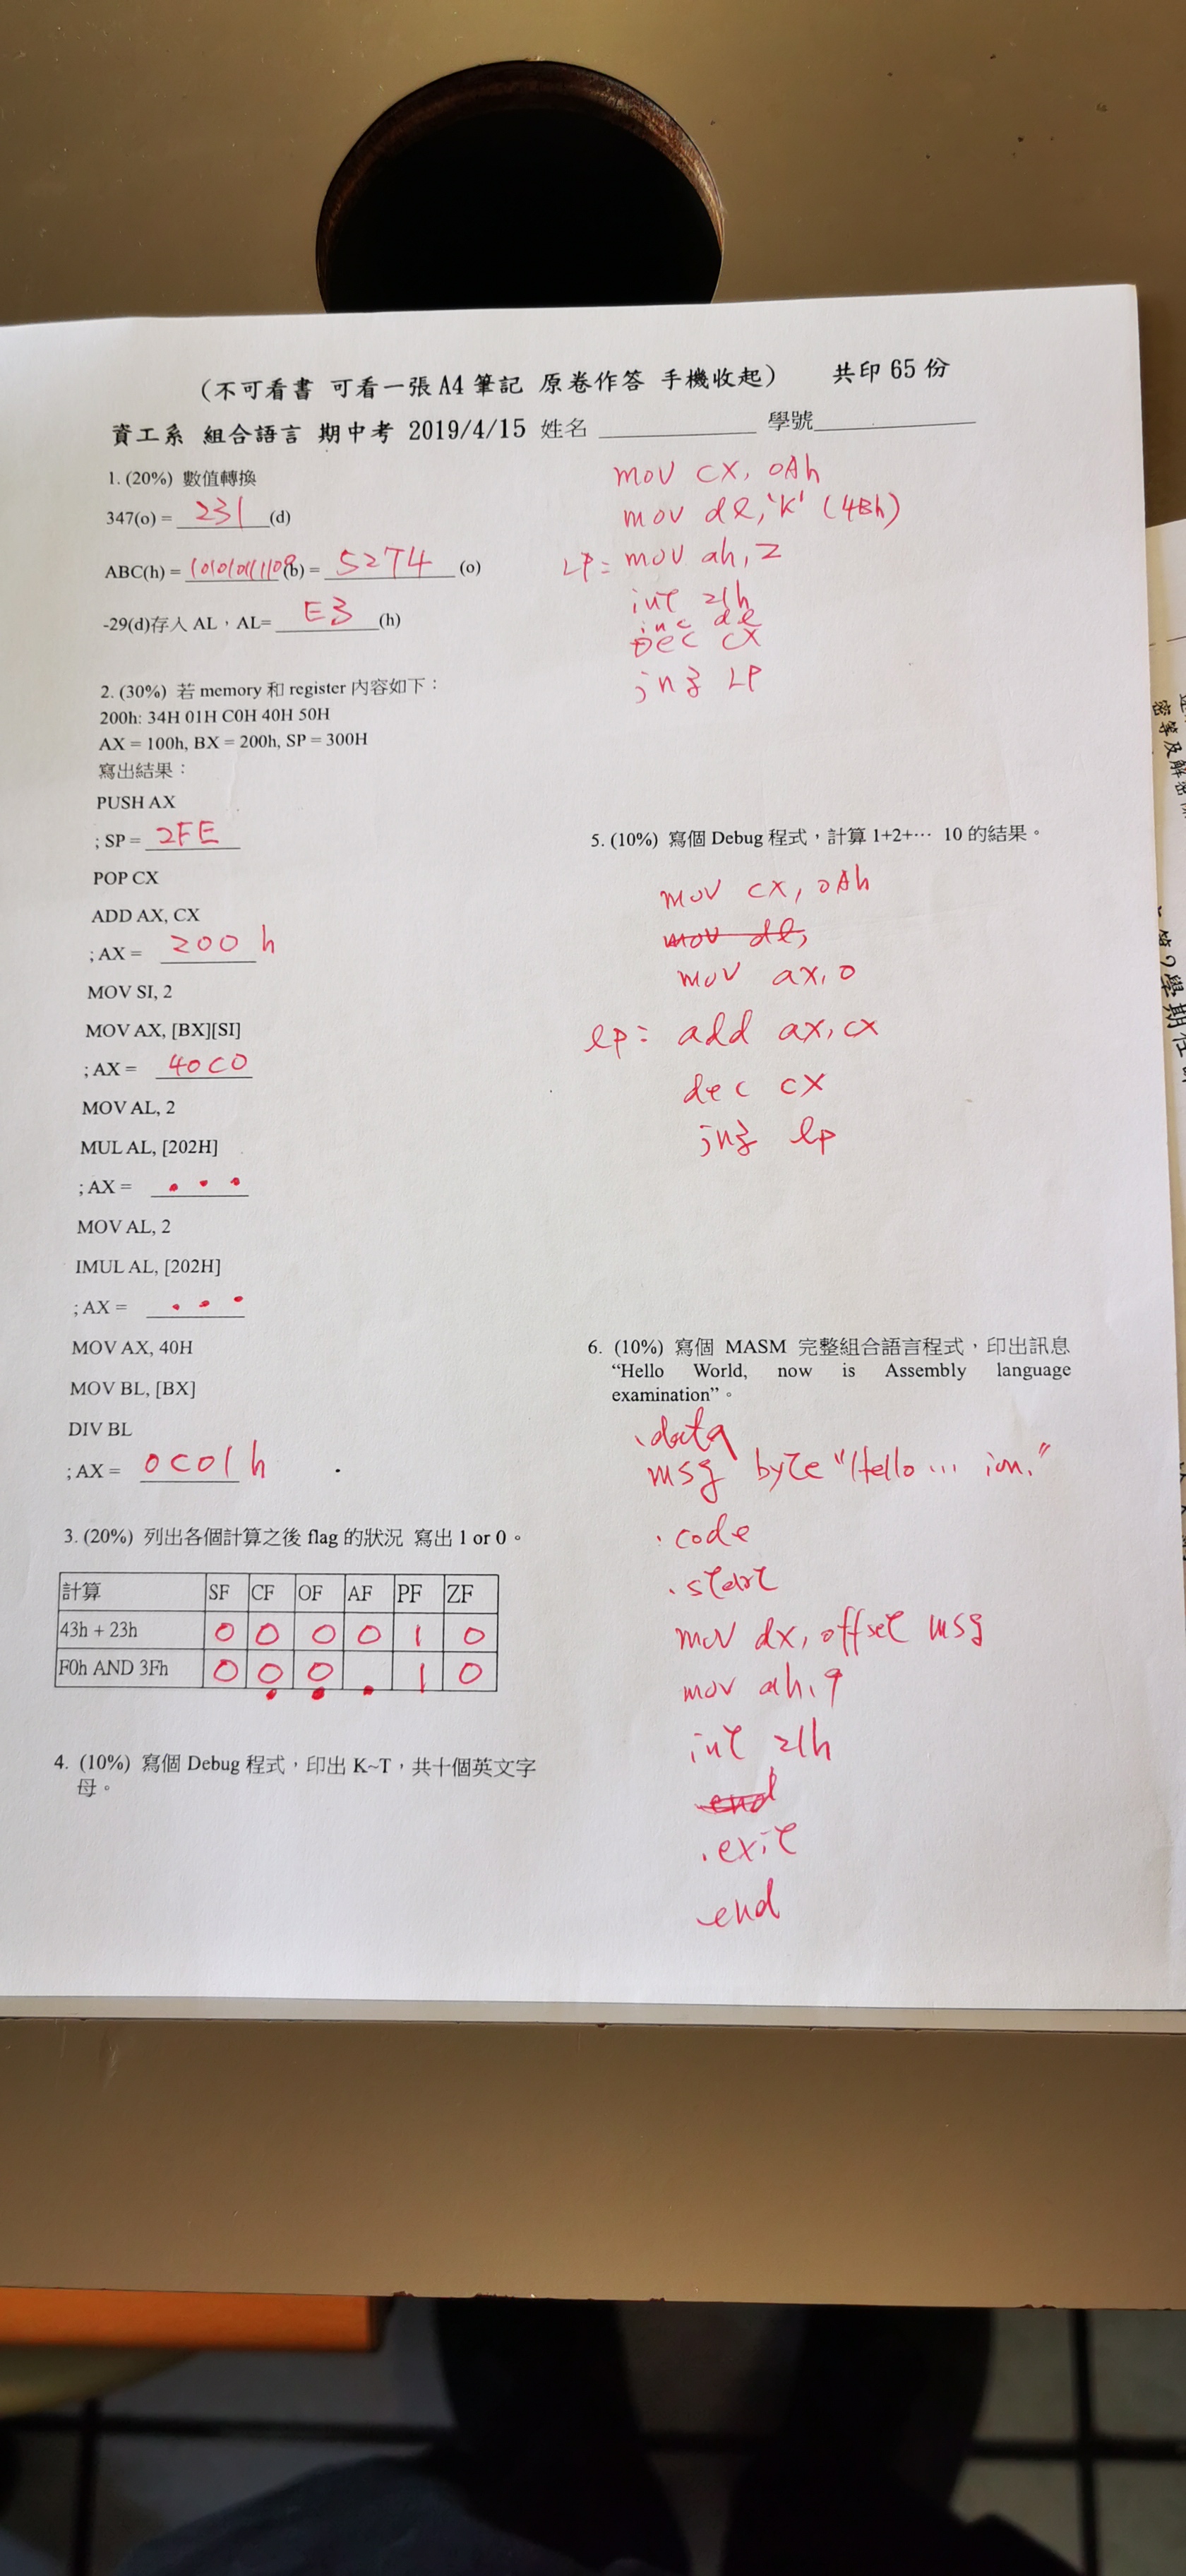 (不可看書 可看一張 A4 筆記 原卷作答 手機收起) 共印 65 份
資工系 組合語言 期中考 2019/4/15 姓名 ＿＿＿＿ 學號＿＿＿＿
1. (20%) 數值轉換
347(o) = 231 (d)
ABC(h) = 101010111100(b) = 5274 (o)
-29(d)存入 AL，AL= E3 (h)
2. (30%) 若 memory 和 register 內容如下：
200h: 34H 01H C0H 40H 50H
AX = 100h, BX = 200h, SP = 300H
寫出結果：
PUSH AX
; SP = 2FE
POP CX
ADD AX, CX
; AX = 200 h
MOV SI, 2
MOV AX, [BX][SI]
; AX = 40C0
MOV AL, 2
MUL AL, [202H]
; AX = . . .
MOV AL, 2
IMUL AL, [202H]
; AX = . . .
MOV AX, 40H
MOV BL, [BX]
DIV BL
; AX = 0C01 h
3. (20%) 列出各個計算之後 flag 的狀況 寫出 1 or 0。
計算 SF CF OF AF PF ZF
43h + 23h 0 0 0 0 1 0
F0h AND 3Fh 0 0 0 . 1 0
4. (10%) 寫個 Debug 程式，印出 K~T，共十個英文字
母。
mov cx, 0Ah
mov dl, 'K' (4Bh)
LP: mov ah, 2
int 21h
inc dl
Dec cx
jnz LP
5. (10%) 寫個 Debug 程式，計算 1+2+… 10 的結果。
mov cx, 0Ah
mov dl,
mov ax, 0
lp: add ax, cx
dec cx
jnz lp
6. (10%) 寫個 MASM 完整組合語言程式，印出訊息
“Hello World, now is Assembly language
examination”。
.data
msg byte "Hello ... ion."
.code
.start
mov dx, offset msg
mov ah, 9
int 21h
end
.exit
end